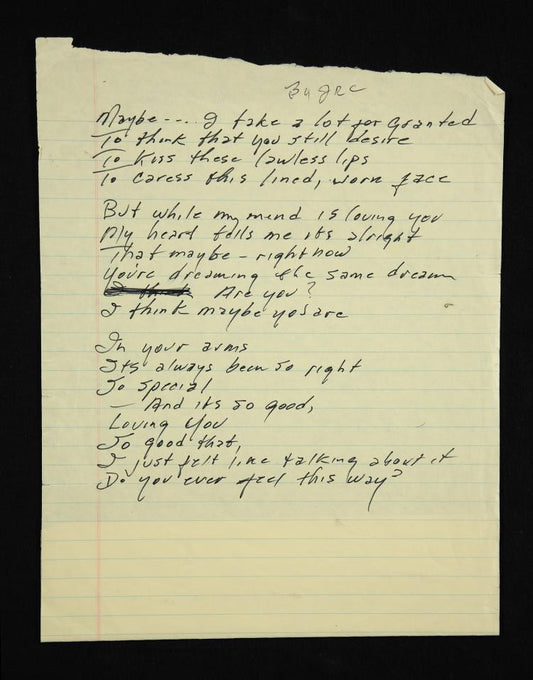 By JRC
Maybe---. I take a lot for granted
To think that you still desire
To kiss these lawless lips
To caress this lined, worn face
But while my mind is loving you
My heart tells me its alright
That maybe - right now
You're dreaming the same dream
Are you?
I think maybe you are
In your arms
Its always been so right
So special
- And its so good,
Loving You
So good that,
I just felt like talking about it
Do you ever feel this way?